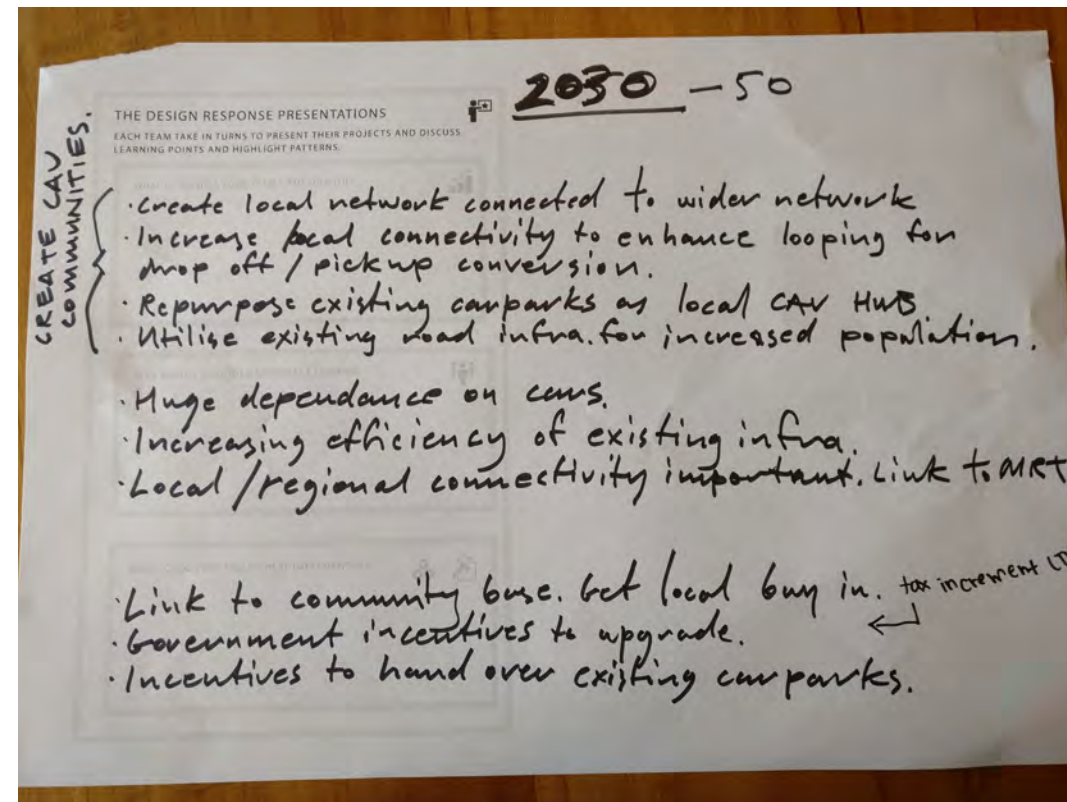 2030 - 50
THE DESIGN RESPONSE PRESENTATIONS
EACH TEAM TAKE IN TURNS TO PRESENT THEIR PROJECTS AND DISCUSS
LEARNING POINTS AND HIGHLIGHT PATTERNS.
CREATE CAV
COMMUNITIES.
· Create local network connected to wider network
· Increase local connectivity to enhance looping for
drop off / pickup conversion.
· Repurpose existing carparks as local CAV HUB.
· Utilise existing road infra. for increased population.
· Huge dependance on cars.
· Increasing efficiency of existing infra.
· Local / regional connectivity important. Link to MRT
· Link to community base. Get local buy in. tax increment
· Government incentives to upgrade.
· Incentives to hand over existing carparks.